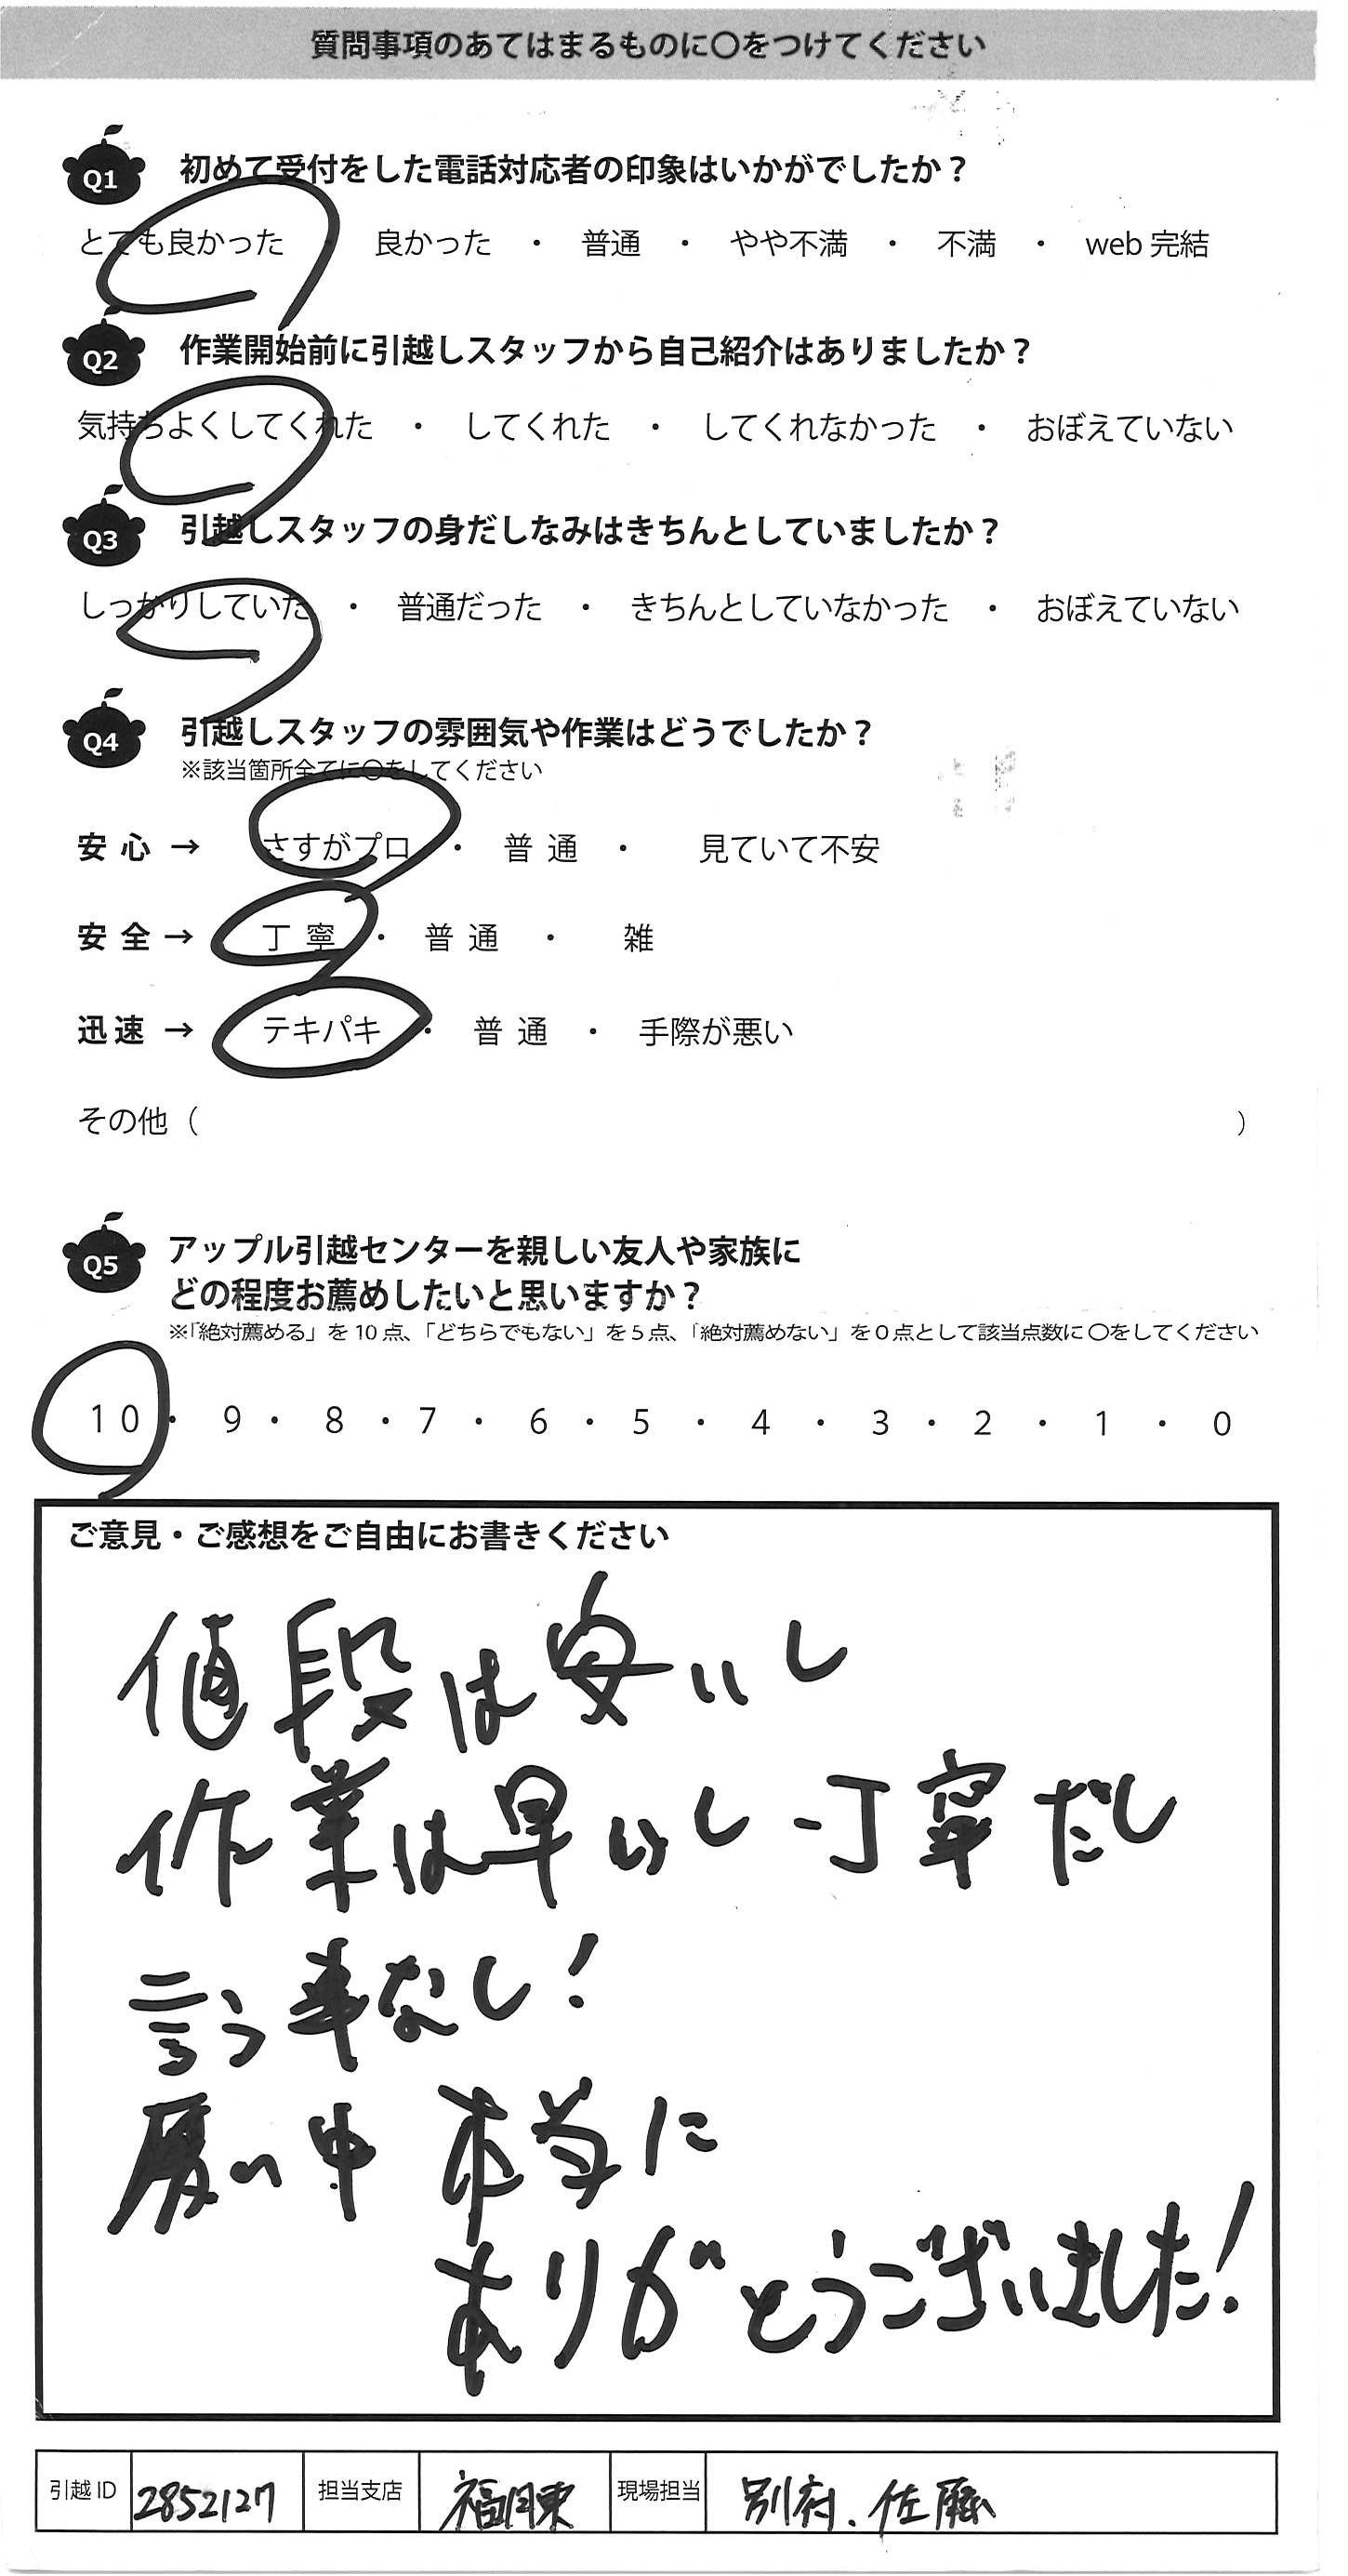 質問事項のあてはまるものに〇をつけてください
Q1 初めて受付をした電話対応者の印象はいかがでしたか？
とても良かった ・ 良かった ・ 普通 ・ やや不満 ・ 不満 ・ web 完結
Q2 作業開始前に引越しスタッフから自己紹介はありましたか？
気持ちよくしてくれた ・ してくれた ・ してくれなかった ・ おぼえていない
Q3 引越しスタッフの身だしなみはきちんとしていましたか？
しっかりしていた ・ 普通だった ・ きちんとしていなかった ・ おぼえていない
Q4 引越しスタッフの雰囲気や作業はどうでしたか？
※該当箇所全てに〇をしてください
安心 → さすがプロ ・ 普通 ・ 見ていて不安
安全 → 丁寧 ・ 普通 ・ 雑
迅速 → テキパキ ・ 普通 ・ 手際が悪い
その他（ ）
Q5 アップル引越センターを親しい友人や家族に
どの程度お薦めしたいと思いますか？
※「絶対薦める」を 10 点、「どちらでもない」を 5 点、「絶対薦めない」を 0 点として該当点数に 〇をしてください
10 ・ 9 ・ 8 ・ 7 ・ 6 ・ 5 ・ 4 ・ 3 ・ 2 ・ 1 ・ 0
ご意見・ご感想をご自由にお書きください
値段は安いし
作業は早いし丁寧だし
言う事なし！
暑い中 本当に
ありがとうございました！
引越 ID 2852127 担当支店 福岡東 現場担当 別府、佐藤